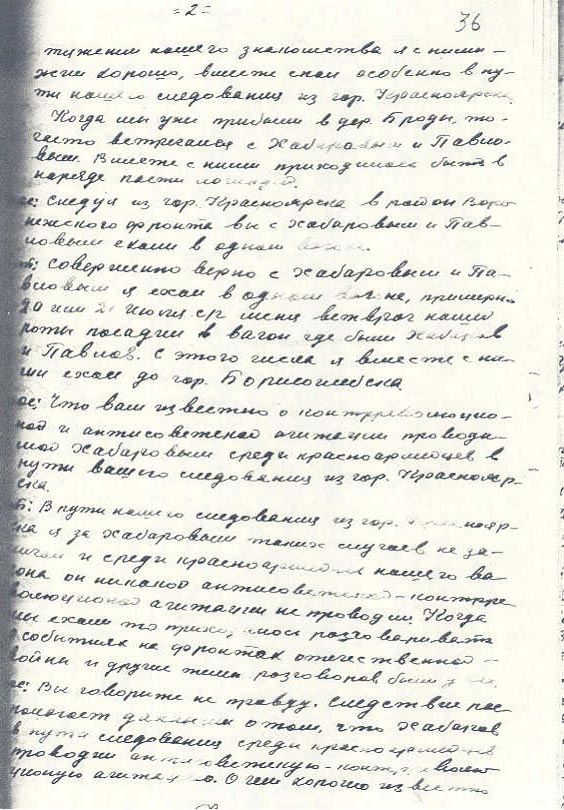 =2=
36
тяжении нашего знакомства я с ними -
жили хорошо, вместе спали особенно в пу-
ти нашего следования из гор. Красноярска.
Когда мы уже прибыли в дер. Броды, то-
часто встречался с Хабаровым и Павло-
вым. Вместе с ними приходилось быть в
наряде пасти лошадей.
ос: Следуя из гор. Красноярска в район Воро
нежского фронта вы с Хабаровым и Пав-
ловым ехали в одном вагоне.
т: Совершенно верно с Хабаровым и Па-
вловым я ехал в одном вагоне, примерно
20 или 21 июля с/г меня
роты посадили в вагон где были Хабаров
и Павлов. С этого числа я вместе с ни-
ми ехал до гор. Борисоглебска
ос: Что вам известно о контрреволюцио-
ной и антисоветской агитации проводи-
мой Хабаровым среди красноармейцев в
пути вашего следования из гор. Краснояр-
ска.
т: В пути нашего следования из гор. Краснояр-
ка я за Хабаровым таких случаев не за-
мечал и среди красноармейцев нашего ва-
она он никакой антисоветской - контрре
волюционой агитации не проводил. Когда
мы ехали то приходилось разговаривать
о событиях на фронтах отечественной -
войны и другие темы разговоров были
ос: Вы говорите не правду. Следствие рас-
полагает данными о том, что Хабаров
в пути следования среди красноармейцев
проводил антисоветскую - контрреволю
ционую агитацию. О чем хорошо известно